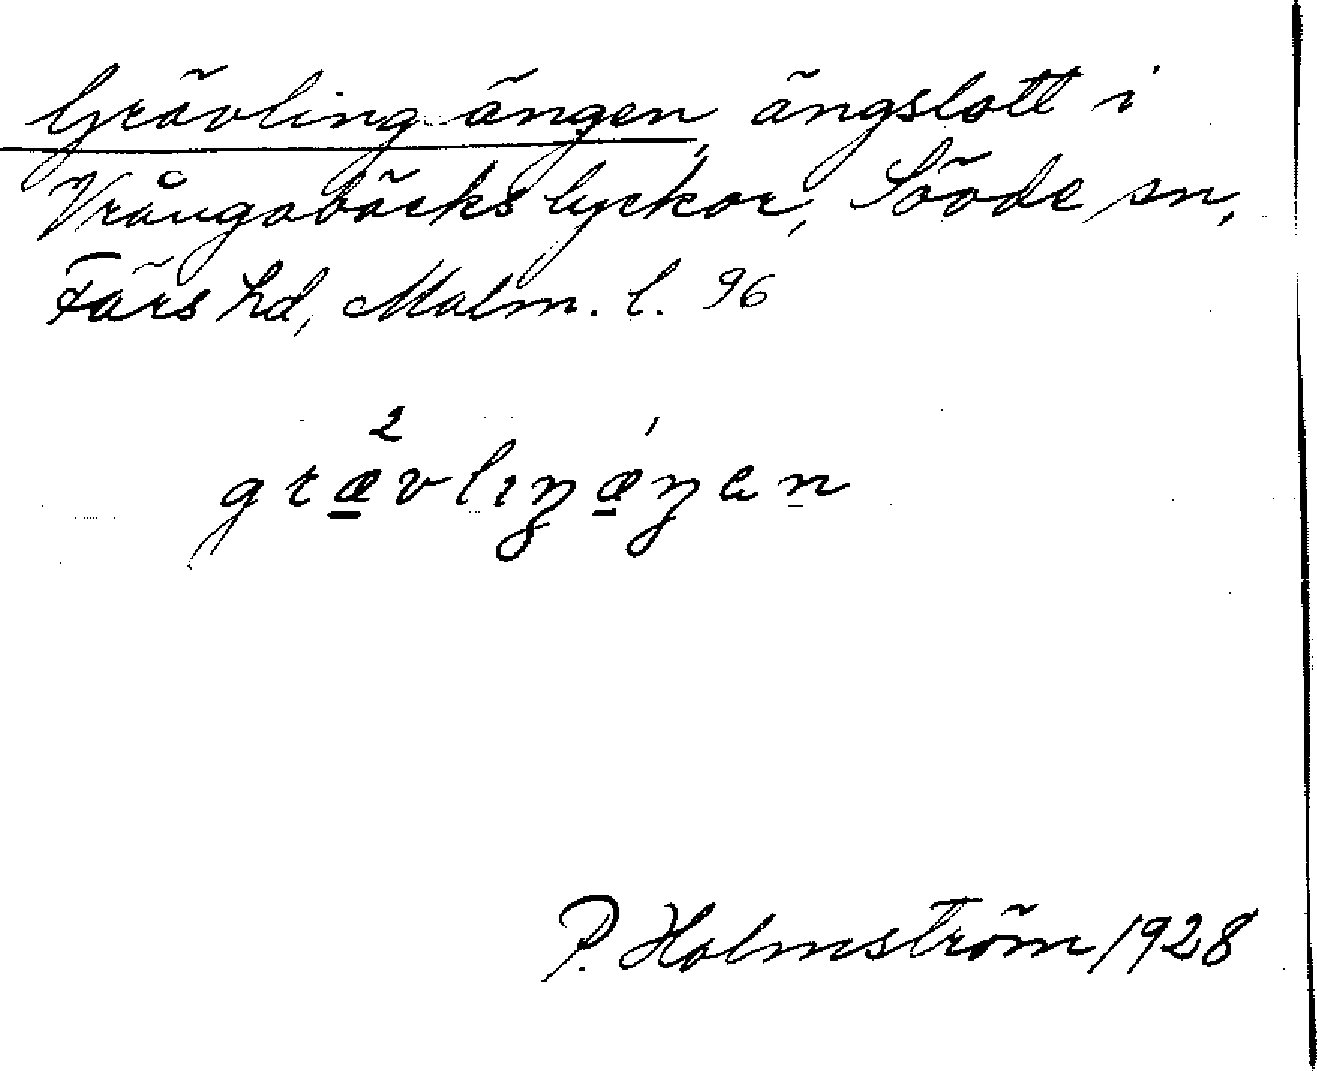 Grävlingängen, ängslott i
Vrångabäcks lyckor, Sövde sn,
Färs hd, Malm. l. 96
2 ˈ
grævlıŋæŋen
P. Holmström 1928